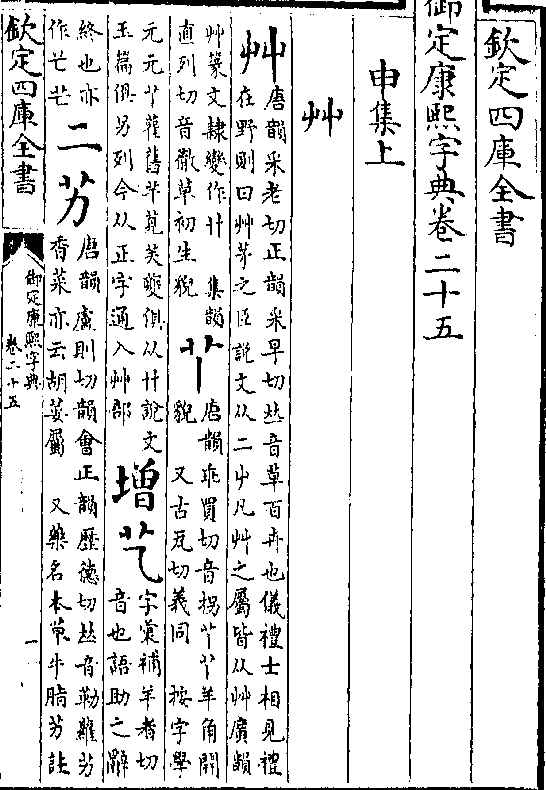 欽定四庫全書
御定康熙字典卷二十五
申集上
艸
艸
唐韻采老切正韻采早切𠀤音草百卉也儀禮士相見禮
在野則曰艸茅之臣說文从二屮凡艸之屬皆从艸廣韻
艸篆文隸變作艹
集韻
直列切音徹草初生貌
𦫳
唐韻乖買切音拐𦫳𦫳羊角開
貌
又古瓦切義同
按字學
元元𦫳雚舊𦫳莧䒤夔俱从艹說文
玉篇俱另列今从正字通入艸部
增
字彙補羊者切
音也語助之辭
終也亦
作芒芒
二
艻
唐韻盧則切韻會正韻歷德切𠀤音勒蘿艻
香菜亦云胡荽屬
又藥名本草牛脂艻註
欽定四庫全書
御定康熙字典
卷二十五
一